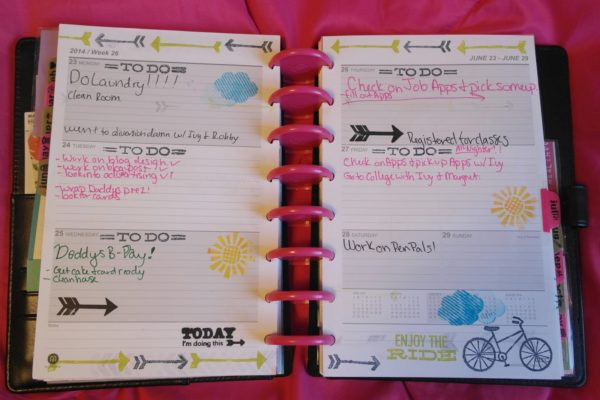 2014 / Week 26
23 MONDAY
TO DO
Do Laundry!!!!
Clean Room
went to diversion damn w/ Ivy & Robby
24 TUESDAY
TO DO
- Work on blog design ✓
- Work on blog post! ✓
- look into advertising ✓!
- wrap Daddys prez!
- look for cards
25 WEDNESDAY
TO DO
Daddys B-Day!
- Get cake & card ready
- Clean house
Notes
TODAY
I'm doing this
JUNE 23 - JUNE 29
26 THURSDAY
TO DO
Check on Job Apps & pick some up.
fill out Apps
Registered for classes
27 FRIDAY
TO DO
All-Nighter!!
Check on Apps & pick up Apps w/ Ivy
Go to College with Ivy & Margret.
28 SATURDAY
29 SUNDAY
Work on Pen Pals!
ENJOY THE
RIDE